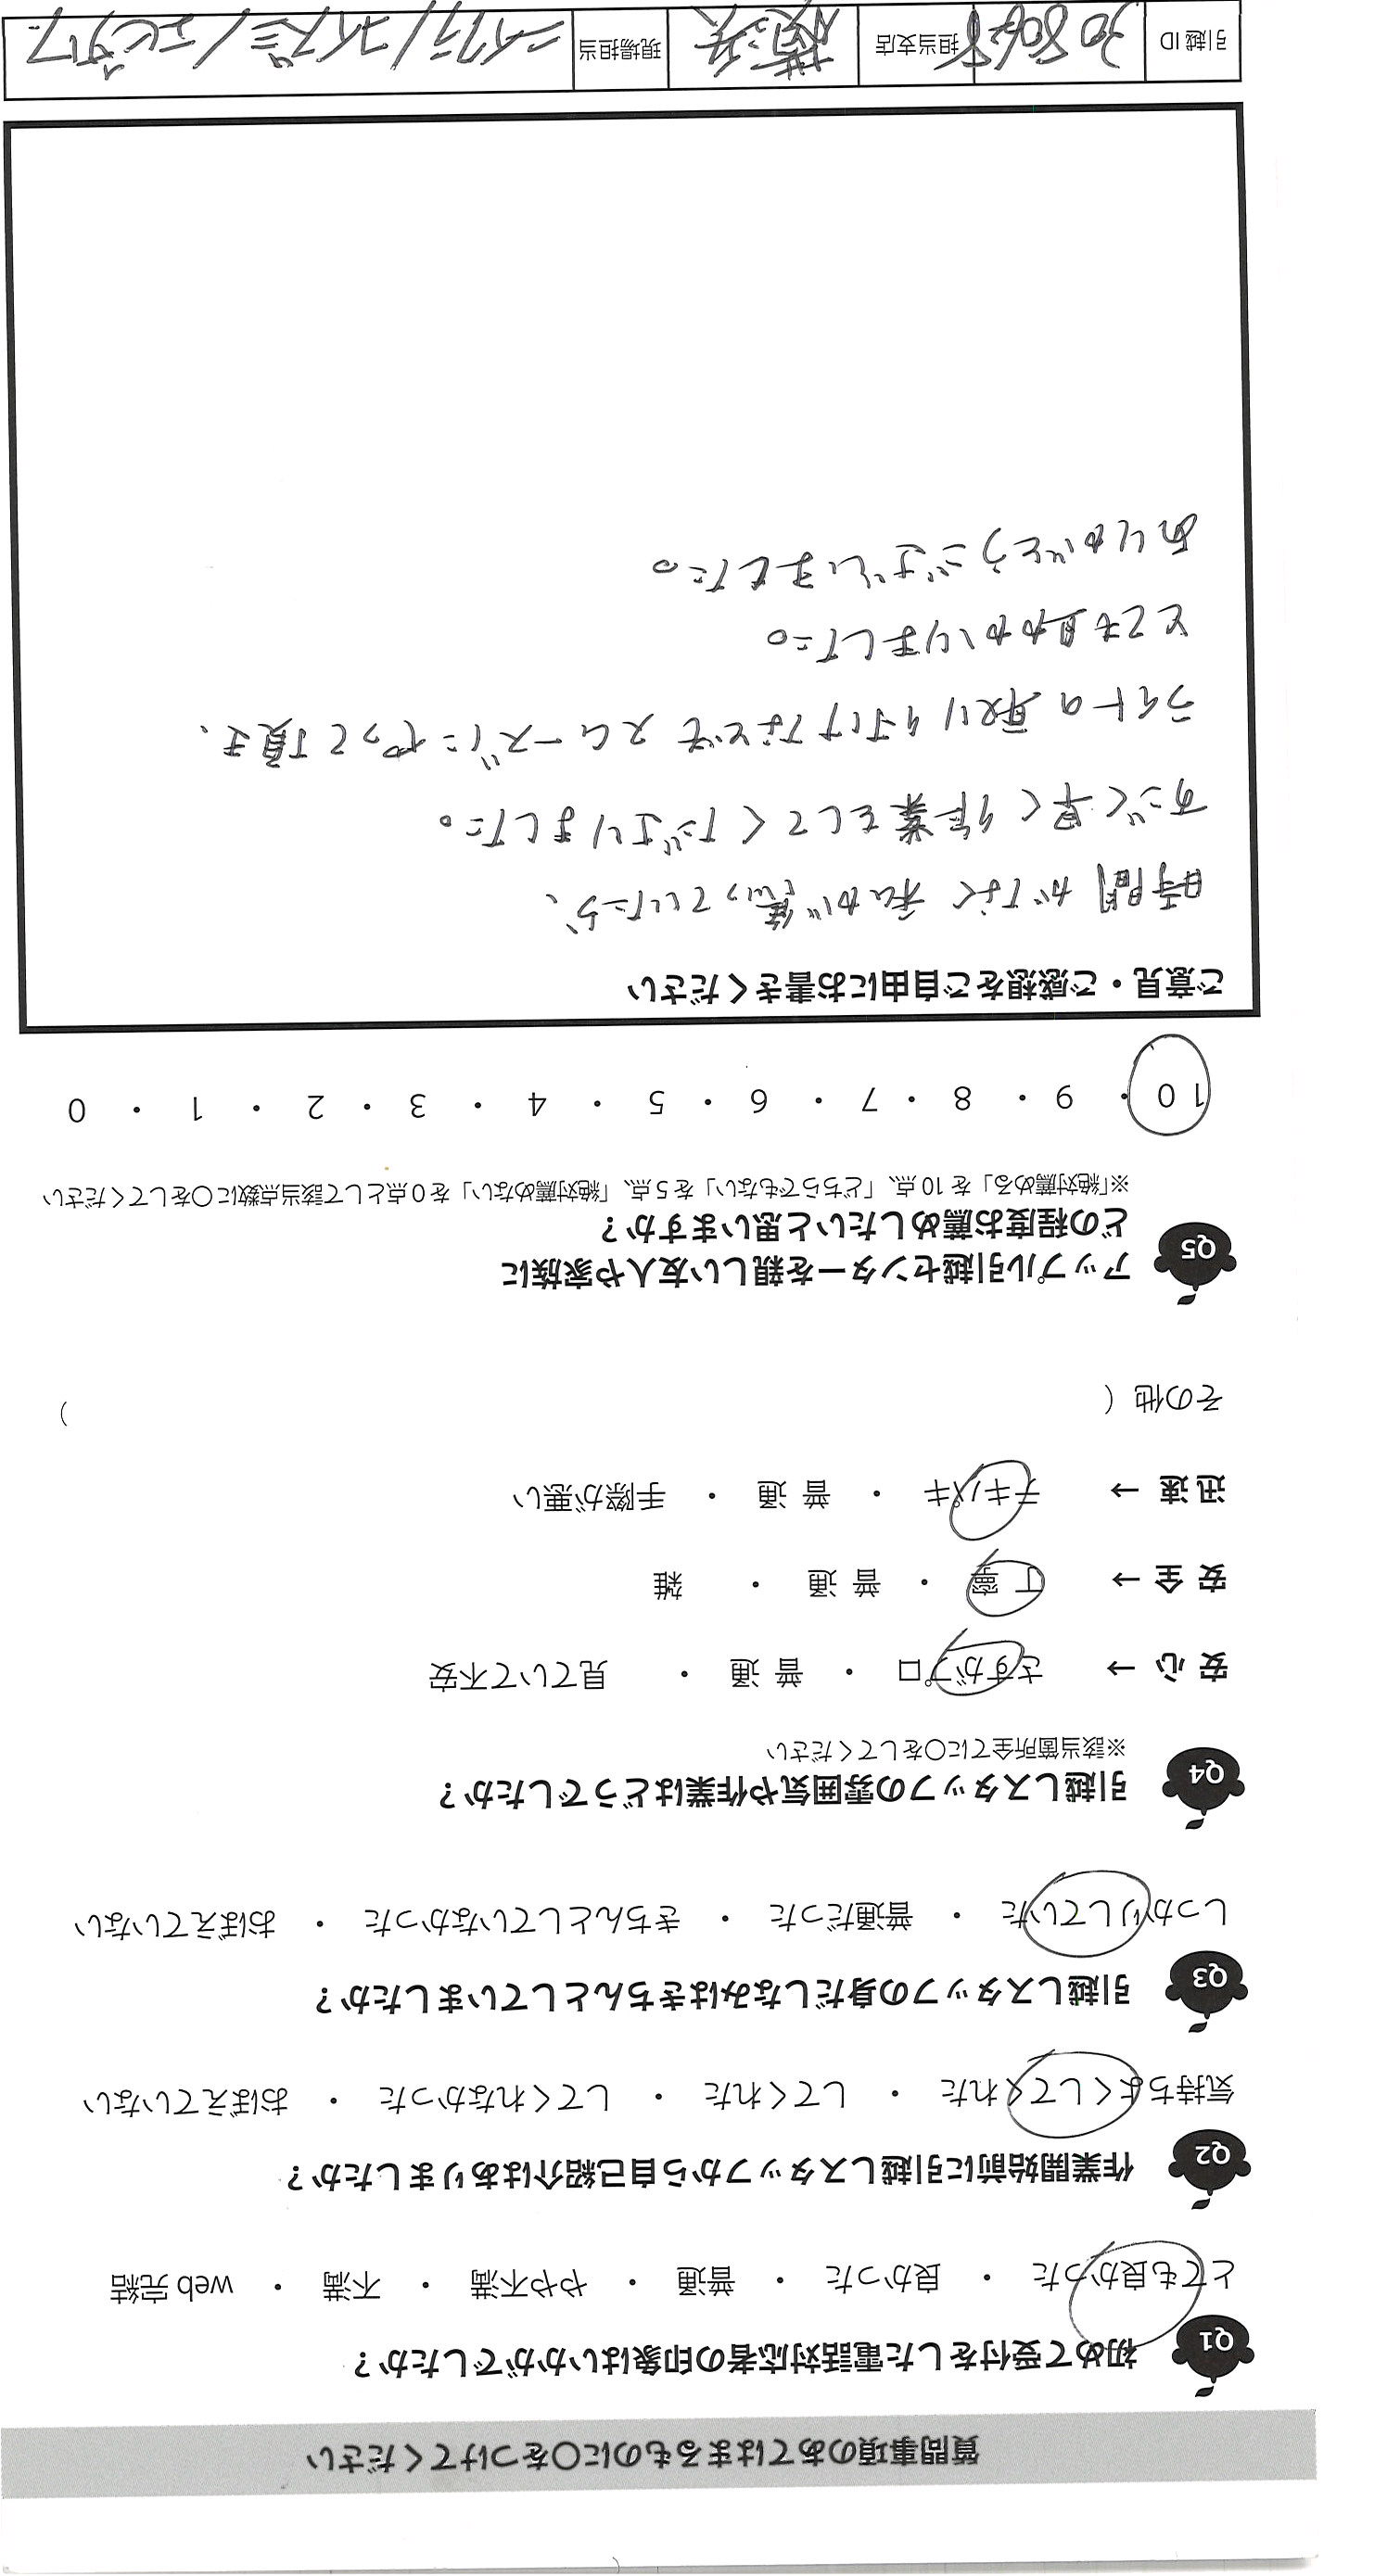 質問事項のあてはまるものに○をつけてください
Q1 初めて受付をした電話対応者の印象はいかがでしたか？
とても良かった ・ 良かった ・ 普通 ・ やや不満 ・ 不満 ・ web 完結
Q2 作業開始前に引越しスタッフから自己紹介はありましたか？
気持ちよくしてくれた ・ してくれた ・ してくれなかった ・ おぼえていない
Q3 引越しスタッフの身だしなみはきちんとしていましたか？
しっかりしていた ・ 普通だった ・ きちんとしていなかった ・ おぼえていない
Q4 引越しスタッフの雰囲気や作業はどうでしたか？
※該当箇所全てに○をしてください
安心 → さすがプロ ・ 普通 ・ 見ていて不安
安全 → 丁寧 ・ 普通 ・ 雑
迅速 → テキパキ ・ 普通 ・ 手際が悪い
その他（ ）
Q5 アップル引越センターを親しい友人や家族に
どの程度お薦めしたいと思いますか？
※「絶対薦める」を 10 点、「どちらでもない」を 5 点、「絶対薦めない」を 0 点として該当点数に○をしてください
10 ・ 9 ・ 8 ・ 7 ・ 6 ・ 5 ・ 4 ・ 3 ・ 2 ・ 1 ・ 0
ご意見・ご感想をご自由にお書きください
時間がなく私が焦っていたら、
すごく早く作業をしてくださりました。
ライトの取り付けなどもスムーズにやって頂き、
とても助かりました。
ありがとうございました。
引越 ID 担当支店 横浜 現場担当